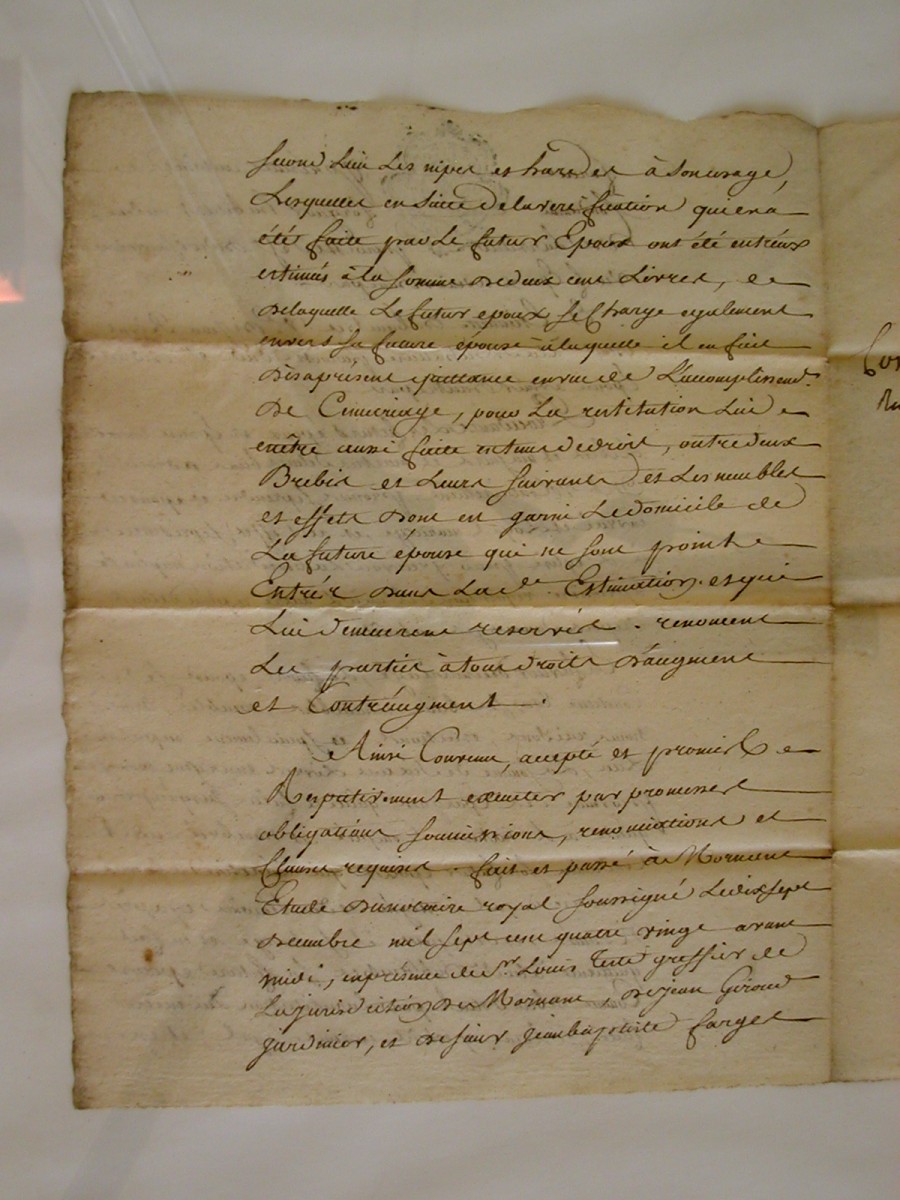 second lieu Les nipes et hardes à son usage,
Lesquelles en suitte de la verification qui en a
été faite par Le futur Epoux ont été entr'eux
estimés à la somme de deux cent Livres, de
delaquelle Le futur epoux se Charge egalement
envers sa future épouse à laquelle il en fait
dès à présent quittance en vue de L'accomplissem.t
de Ce mariage, pour La restitution Lui
en être aussi faite en tems de droit, outre deux
Brebis et Leurs suivants et Les meubles
et effets dont est garni Le domicile de
La future épouse qui ne sont point
Entrés dans La d.e Estimation et qui
Lui demeurent reservés. renoncent
Les parties à tous droits d'augment
et Contr'augment.
Ainsi Convenu, accepté et promis
Respectivement executer par promesses
obligations soumissions, renonciations et
Clauses requises. fait et passé à Mornant
Etude du notaire royal soussigné Le dix sept
decembre mil sept cent quatre vingt avant
midi, en présence de S.r Louis greffier de
La jurisdiction de Mornant, de Jean Giroud
jardinier, et de sieur Jean baptiste farges